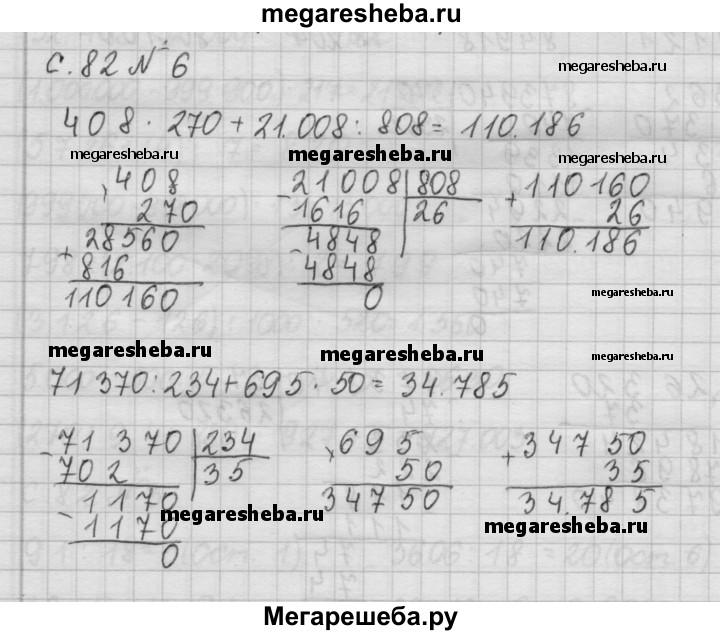 megaresheba.ru
с. 82 № 6
megaresheba.ru
408 · 270 + 21.008 : 808 = 110.186
megaresheba.ru megaresheba.ru megaresheba.ru
× 408
270
+ 28560
816
110160
- 21008 | 808
1616 | 26
- 4848
4848
0
+ 110160
26
110.186
megaresheba.ru
megaresheba.ru megaresheba.ru megaresheba.ru
71 370 : 234 + 695 · 50 = 34.785
- 71 370 | 234
702 | 35
- 1170
1170
0
× 695
50
34750
+ 34750
35
34.785
megaresheba.ru megaresheba.ru
Мегарешеба.ру